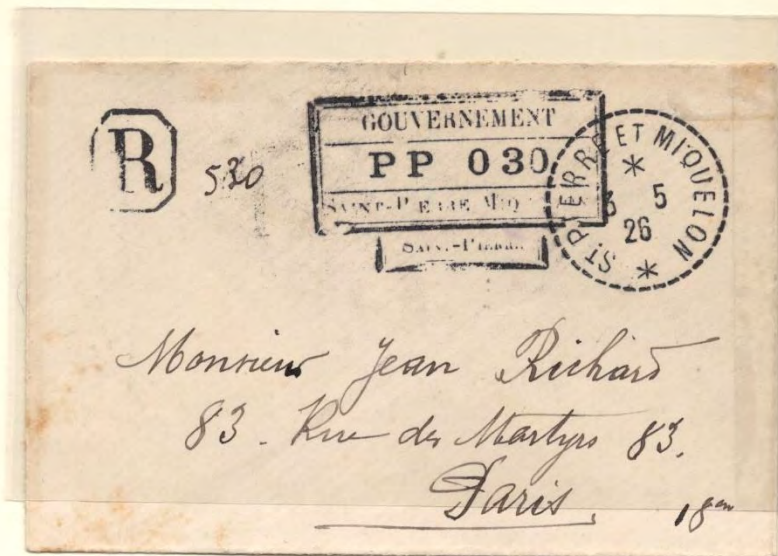 R
530
GOUVERNEMENT
PP 030
SAINT-PIERRE MIQ
SAINT-PIERRE
ST PIERRE ET MIQUELON
* 3 5
26 *
Monsieur Jean Richard
83. Rue des Martyrs 83.
Paris. 18em